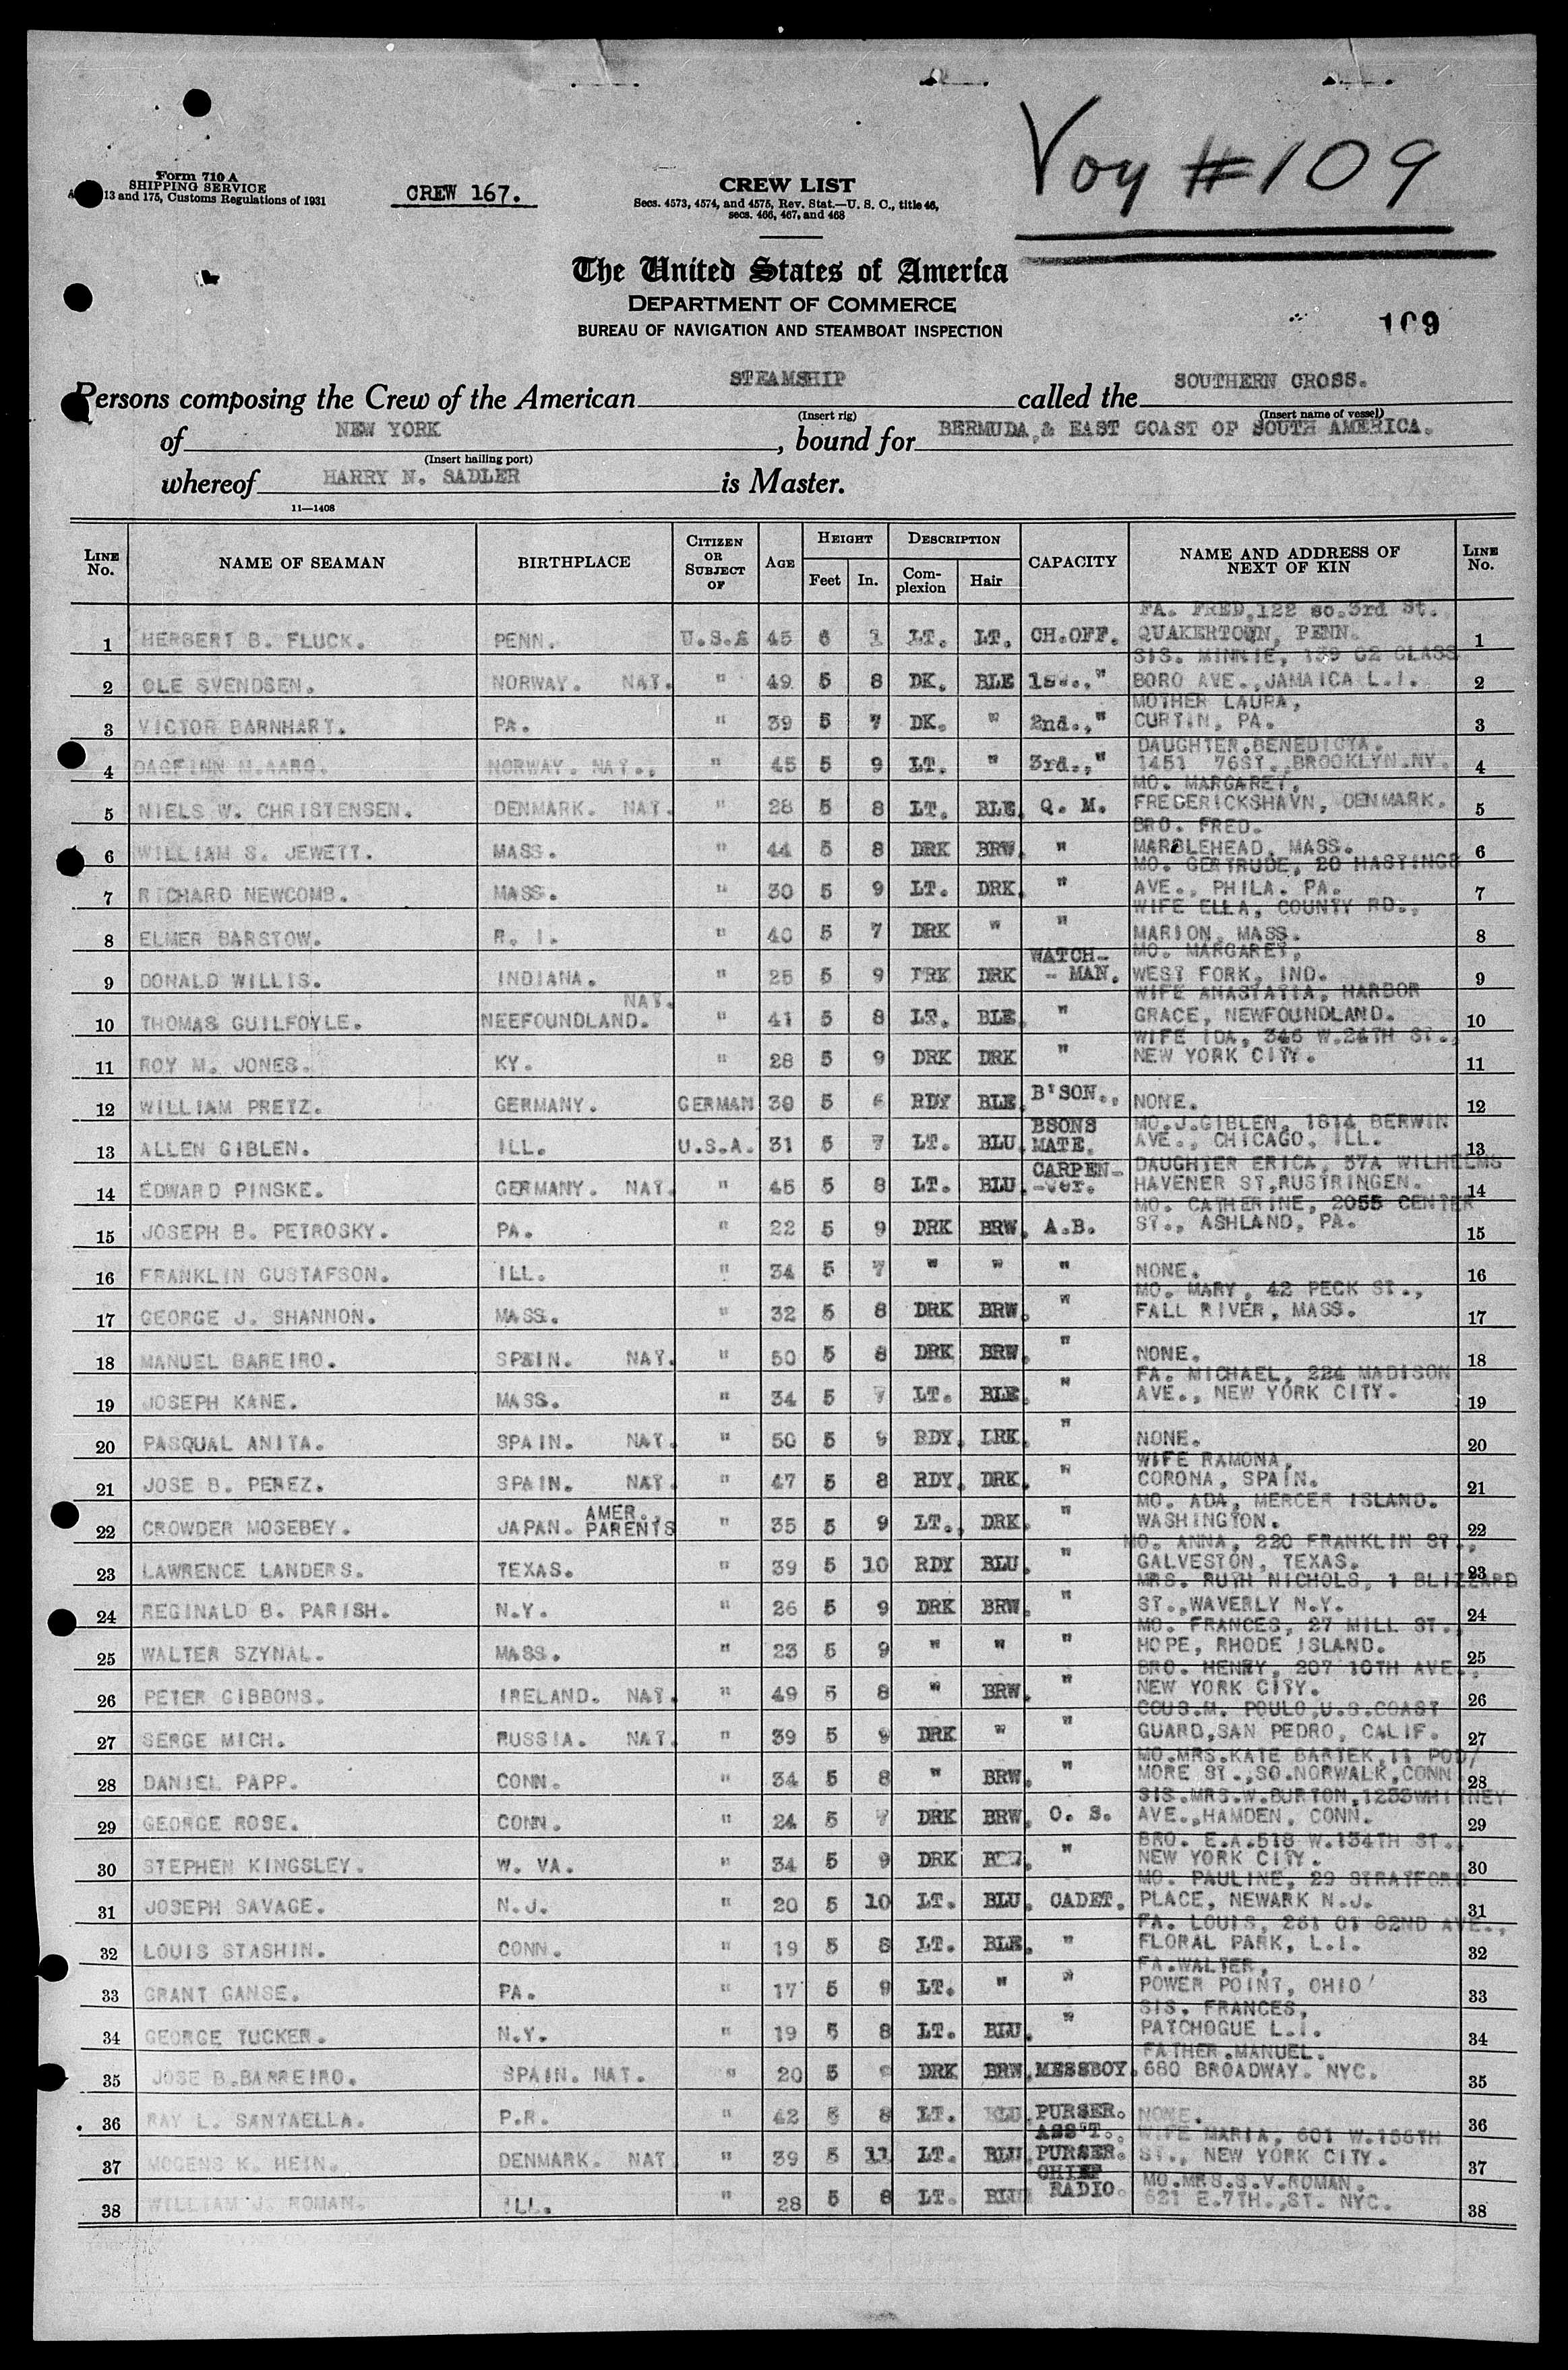 Voy # 109
Form 710 A
SHIPPING SERVICE
13 and 175, Customs Regulations of 1931
CREW 167.
CREW LIST
Secs. 4573, 4574, and 4575, Rev. Stat.—U. S. C., title 46,
secs. 466, 467, and 468
The United States of America
DEPARTMENT OF COMMERCE
BUREAU OF NAVIGATION AND STEAMBOAT INSPECTION
109
Persons composing the Crew of the American STEAMSHIP called the SOUTHERN CROSS.
(Insert rig) (Insert name of vessel)
of NEW YORK, bound for BERMUDA, & EAST COAST OF SOUTH AMERICA.
(Insert hailing port)
whereof HARRY N. SADLER is Master.
11—1408
LINE No. NAME OF SEAMAN BIRTHPLACE CITIZEN OR SUBJECT OF AGE HEIGHT Feet In. DESCRIPTION Complexion Hair CAPACITY NAME AND ADDRESS OF NEXT OF KIN LINE No.
1 HERBERT B. FLUCK. PENN. U.S.A 45 6 LT. LT. CH.OFF. FA. FRED, 122 so. 3rd St. QUAKERTOWN, PENN. 1
2 OLE SVENDSEN. NORWAY. NAT. " 49 5 8 DK. BLE 1st.," SIS. MINNIE, 139 02 GLASS BORO AVE., JAMAICA L.I. 2
3 VICTOR BARNHART. PA. " 39 5 7 DK. " 2nd.," MOTHER LAURA, CURTIN, PA. 3
4 DAGFINN N.AARO. NORWAY. NAT., " 45 5 9 LT. " 3rd.," DAUGHTER.BENEDICTA. 1451 76ST. BROOKLYN.NY. 4
5 NIELS W. CHRISTENSEN. DENMARK. NAT. " 28 5 8 LT. BLE. Q. M. MO. MARGARET, FREDERICKSHAVN, DENMARK. 5
6 WILLIAM S. JEWETT. MASS. " 44 5 8 DRK BRW. " BRO. FRED. MARBLEHEAD, MASS. 6
7 RICHARD NEWCOMB. MASS. " 30 5 9 LT. DRK. " MO. GERTRUDE, 20 HASTINGS AVE., PHILA. PA. 7
8 ELMER BARSTOW. R. I. " 40 5 7 DRK " " WIFE ELLA, COUNTY RD., MARION, MASS. 8
9 DONALD WILLIS. INDIANA. " 25 5 9 DRK DRK WATCH- - MAN. MO. MARGARET, WEST FORK, IND. 9
10 THOMAS GUILFOYLE. NEEFOUNDLAND. NAT. " 41 5 8 LT. BLE. " WIFE ANASTATIA, HARBOR GRACE, NEWFOUNDLAND. 10
11 ROY M. JONES. KY. " 28 5 9 DRK DRK " WIFE IDA, 346 W.24TH ST., NEW YORK CITY. 11
12 WILLIAM PRETZ. GERMANY. GERMAN 30 5 6 RDY BLE. B'SON., NONE. 12
13 ALLEN GIBLEN. ILL. U.S.A. 31 5 7 LT. BLU. BSONS MATE. MO.J.GIBLEN, 1814 BERWIN AVE., CHICAGO, ILL. 13
14 EDWARD PINSKE. GERMANY. NAT. " 45 5 8 LT. BLU. CARPEN- -ter. DAUGHTER ERICA, 37A WILHELMS HAVENER ST,RUSTRINGEN. 14
15 JOSEPH B. PETROSKY. PA. " 22 5 9 DRK BRW. A.B. MO. CATHERINE, 2055 CENTER ST., ASHLAND, PA. 15
16 FRANKLIN GUSTAFSON. ILL. " 34 5 7 " " " NONE. 16
17 GEORGE J. SHANNON. MASS. " 32 5 8 DRK BRW. " MO. MARY, 42 PECK ST., FALL RIVER, MASS. 17
18 MANUEL BAREIRO. SPAIN. NAT. " 50 5 8 DRK BRW. " NONE. 18
19 JOSEPH KANE. MASS. " 34 5 7 LT. BLE. " FA. MICHAEL, 224 MADISON AVE., NEW YORK CITY. 19
20 PASQUAL ANITA. SPAIN. NAT. " 50 5 9 RDY. DRK. " NONE. 20
21 JOSE B. PEREZ. SPAIN. NAT. " 47 5 8 RDY. DRK. " WIFE RAMONA, CORONA, SPAIN. 21
22 CROWDER MOSEBEY. JAPAN. AMER., PARENTS " 35 5 9 LT., DRK. " MO. ADA, MERCER ISLAND. WASHINGTON. 22
23 LAWRENCE LANDERS. TEXAS. " 39 5 10 RDY BLU. " MO. ANNA, 220 FRANKLIN ST., GALVESTON, TEXAS. 23
24 REGINALD B. PARISH. N.Y. " 26 5 9 DRK BRW. " MRS. RUTH NICHOLS, 1 BLIZZARD ST.,WAVERLY N.Y. 24
25 WALTER SZYNAL. MASS. " 23 5 9 " " " MO. FRANCES, 27 MILL ST., HOPE, RHODE ISLAND. 25
26 PETER GIBBONS. IRELAND. NAT. " 49 5 8 " BRW. " BRO. HENRY, 207 10TH AVE., NEW YORK CITY. 26
27 SERGE MICH. RUSSIA. NAT. " 39 5 9 DRK " " COUS.M. POULO,U.S.COAST GUARD,SAN PEDRO, CALIF. 27
28 DANIEL PAPP. CONN. " 34 5 8 " BRW. " MO.MRS.KATE BARTEK,11 POD/ MORE ST.,SO.NORWALK,CONN 28
29 GEORGE ROSE. CONN. " 24 5 7 DRK BRW. O. S. SIS.MRS.W.BURTON,1255WHITNEY AVE.,HAMDEN, CONN. 29
30 STEPHEN KINGSLEY. W. VA. " 34 5 9 DRK " BRO. E.A.518 W.134TH ST., NEW YORK CITY. 30
31 JOSEPH SAVAGE. N.J. " 20 5 10 LT. BLU. CADET. MO. PAULINE, 29 STRATFORD PLACE, NEWARK N.J. 31
32 LOUIS STASHIN. CONN. " 19 5 8 LT. BLE. " FA. LOUIS, 261 01 82ND AVE., FLORAL PARK, L.I. 32
33 GRANT GANSE. PA. " 17 5 9 LT. " " FA.WALTER, POWER POINT, OHIO 33
34 GEORGE TUCKER. N.Y. " 19 5 8 LT. BLU. " SIS. FRANCES, PATCHOGUE L.I. 34
35 JOSE B.BARREIRO. SPAIN. NAT. " 20 5 DRK BRW. MESSBOY. FATHER.MANUEL. 680 BROADWAY. NYC. 35
36 RAY L. SANTAELLA. P.R. " 42 5 8 LT. BLU. PURSER. NONE. 36
37 MOGENS K. HEIN. DENMARK. NAT " 39 5 11 LT. BLU. ASS'T., PURSER. WIFE MARIA, 601 W.156TH ST., NEW YORK CITY. 37
38 WILLIAM J. ROMAN. ILL. " 28 5 8 LT. BLU CHIEF RADIO. MO.MRS.S.V.ROMAN. 621 E.7TH.,ST. NYC. 38